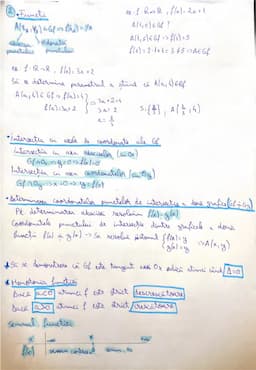 ② • Funcții
A(x₀, y₀) ∈ Gf ⇒ f(x₀) = y₀
abscisa punctului
ordonata punctului
ex. f: R→R, f(x) = 2x+1
A(1,5) ∈ Gf ?
A(1,5) ∈ Gf ⇒ f(1) = 5
ex. f: R→R, f(x) = 3x+2
Să se determine parametrul a știind că A(a,4) ∈ Gf
A(a,4) ∈ Gf ⇒ f(a) = 4
f(a) = 3a+2
3a+2 = 4
3a = 2
a = 2/3
• Intersecția cu axele de coordonate ale Gf
Intersecția cu axa absciselor (axa Ox)
Gf ∩ Ox ⇒ y=0 ⇒ f(x)=0
Intersecția cu axa ordonatelor (axa Oy)
Gf ∩ Oy ⇒ x=0 ⇒ y=f(0)
• Determinarea coordonatelor punctelor de intersecție a două grafice
Pt. determinarea abscisei rezolvăm f(x) = g(x)
Coordonatele punctului de intersecție dintre graficele a două
funcții f(x) și g(x) ⇒ Se rezolvă sistemul { f(x)=y
g(x)=y ⇒ A(x,y)
Să se demonstreze că Gf este tangent axei Ox adică atunci când Δ=0
• Monotonia funcției
Dacă a<0 atunci f este strict descrescătoare
Dacă a>0 atunci f este strict crescătoare
Semnul funcției
x
f(x)